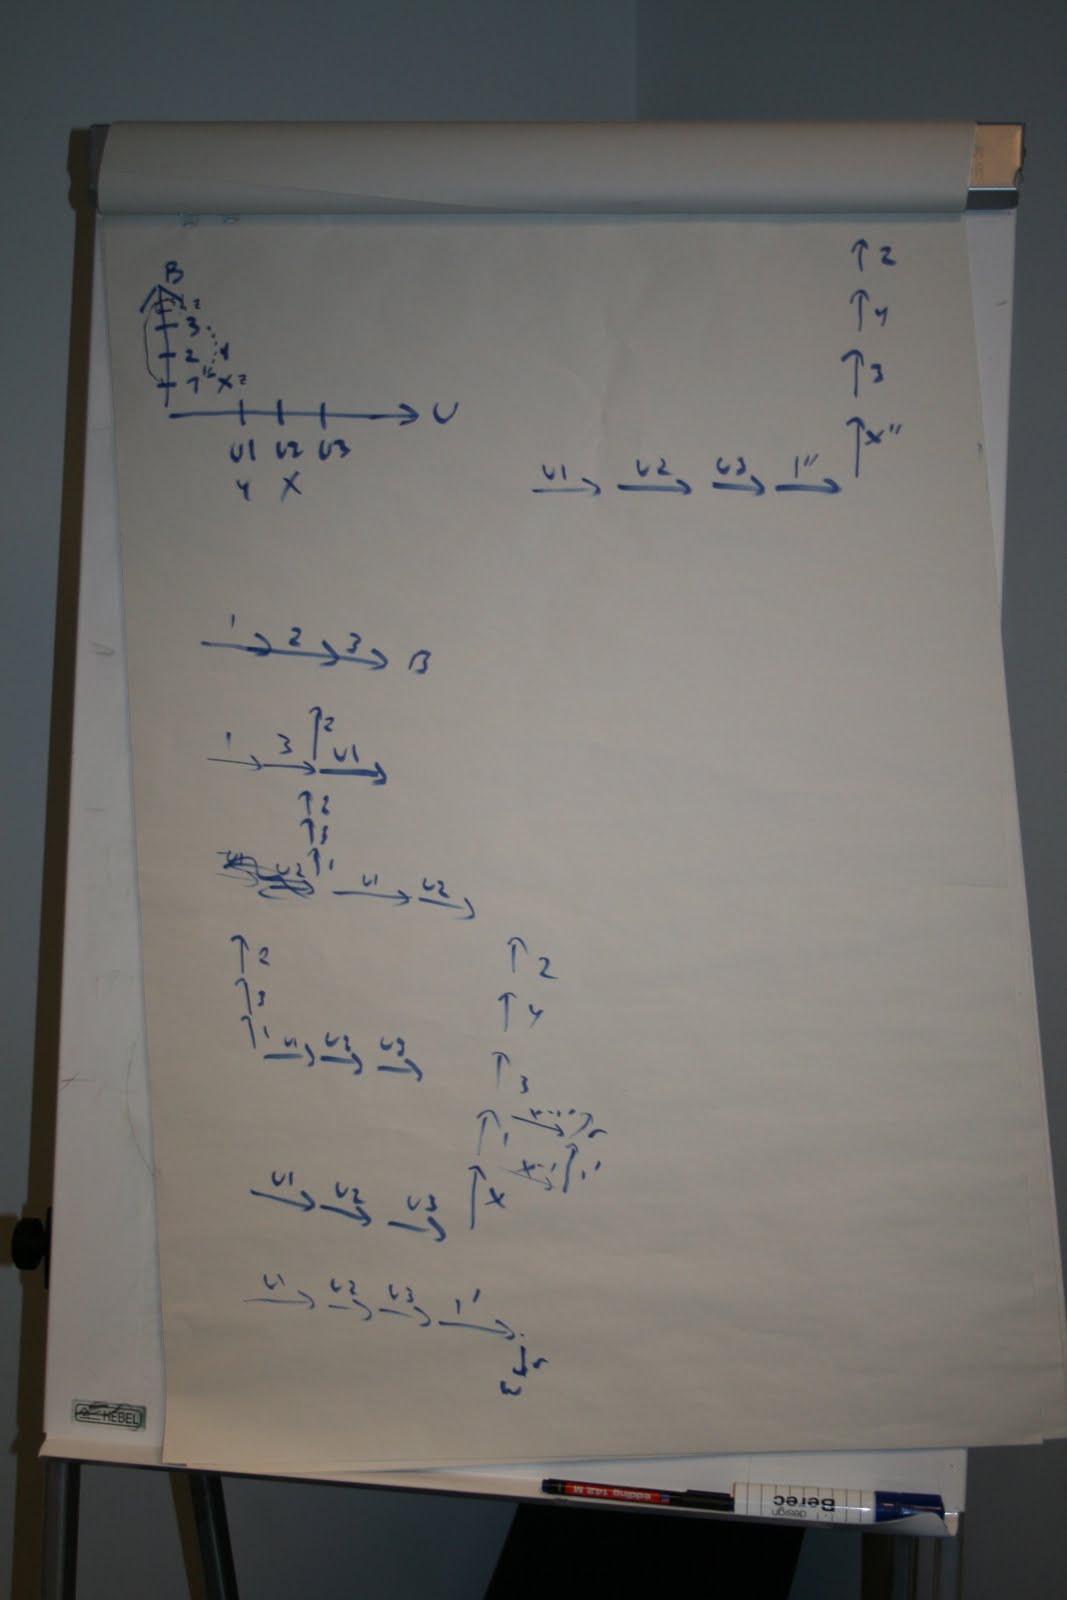 B
3
2
1" X
U
U1 U2 U3
Y X
2
Y
3
X"
U1 U2 U3 1"
1 2 3 B
2
1 3 U1
2
3
1
U2 U1 U2
2
3
1
U1 U2 U3
2
Y
3
1
X
U1 U2 U3
U1 U2 U3 1'
HEBEL
edding 142 M
Berec
design